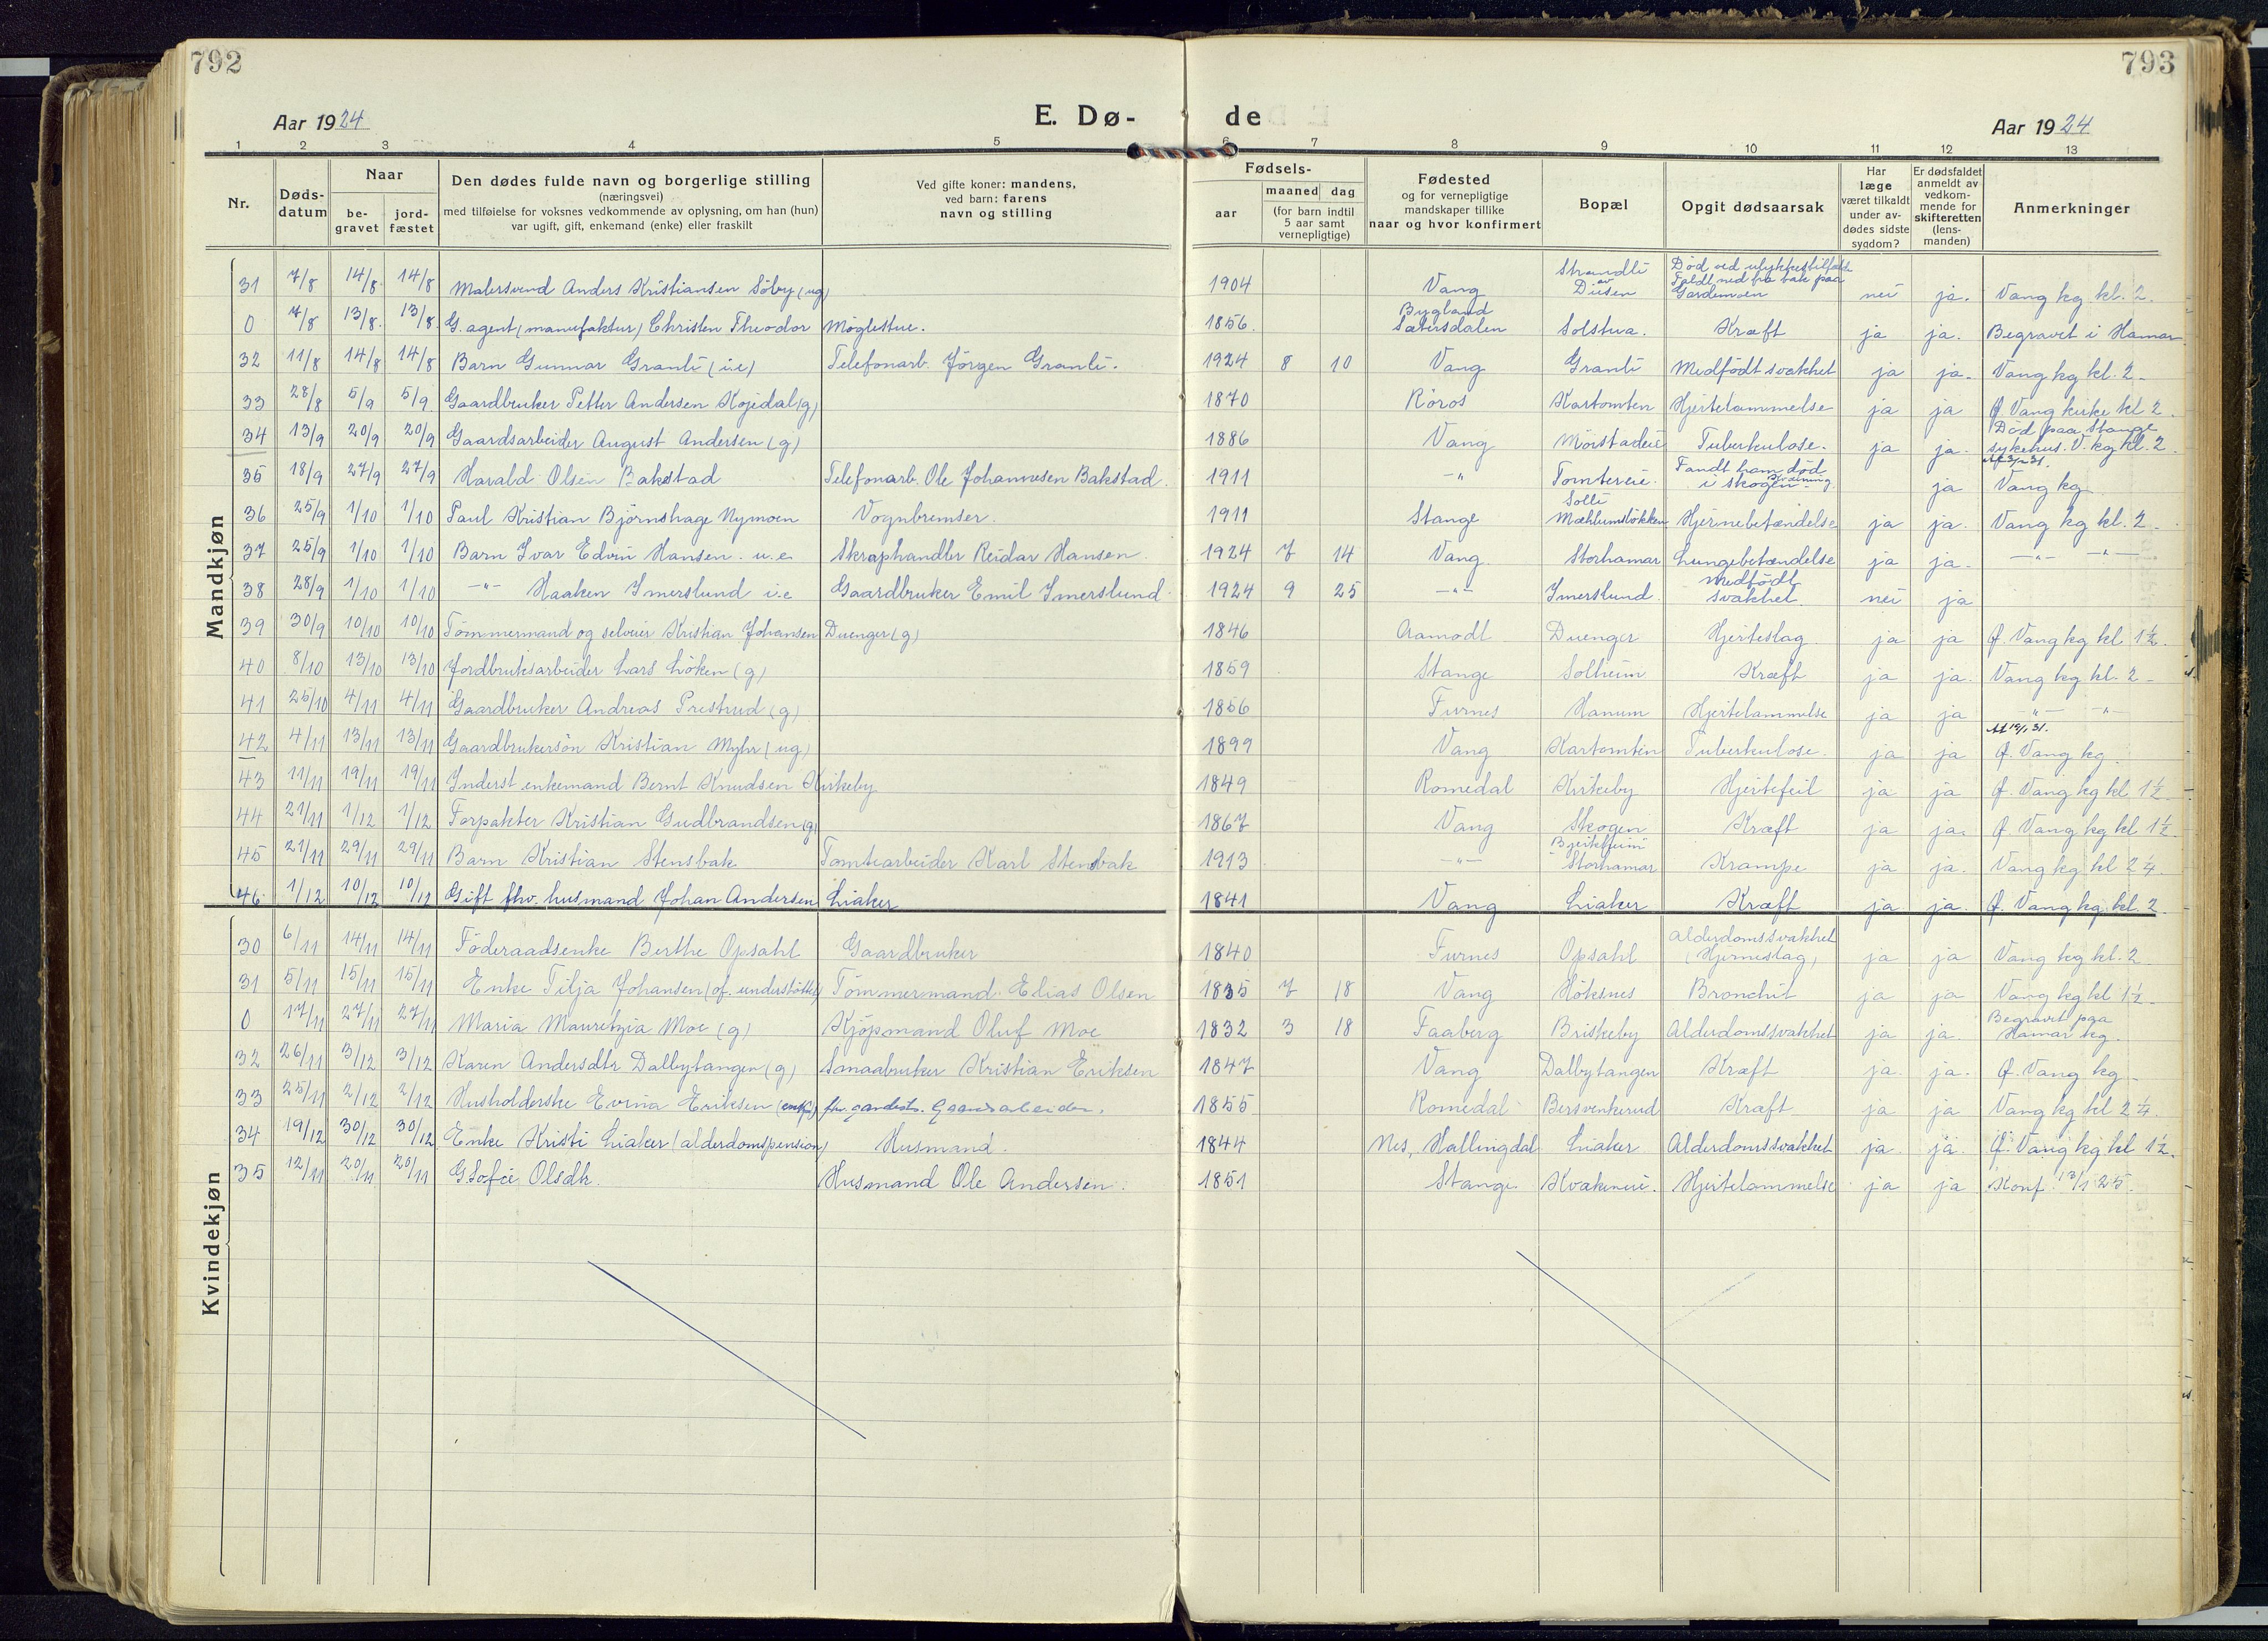 792
793
Aar 1924
E. Dø-
de
Aar 1924
1 2 3 4 5 6 7 8 9 10 11 12 13
Nr.
Døds-
datum
Naar
be-
gravet
jord-
fæstet
Den dødes fulde navn og borgerlige stilling
(næringsvei)
med tilføielse for voksnes vedkommende av oplysning, om han (hun)
var ugift, gift, enkemand (enke) eller fraskilt
Ved gifte koner: mandens,
ved barn: farens
navn og stilling
Fødsels-
aar
maaned dag
(for barn indtil
5 aar samt
vernepligtige)
Fødested
og for vernepligtige
mandskaper tillike
naar og hvor konfirmert
Bopæl
Opgit dødsaarsak
Har
læge
været tilkaldt
under av-
dødes sidste
sygdom?
Er dødsfaldet
anmeldt av
vedkom-
mende for
skifteretten
(lens-
manden)
Anmerkninger
Mandkjøn
31 7/8 14/8 14/8 Malersvend Anders Kristiansen Söby (ug) 1904 Vang Strandli av Diesen Död ved ulykkestilfælde Faldt ned fra tak paa Gardemoen nei ja. Vang kg kl. 2.
0 7/8 13/8 13/8 G. agent (manufaktur) Christen Theodor Möglestue. 1856. Bygland Sætersdalen Solstua. Kræft ja ja. Begravet i Hamar
32 11/8 14/8 14/8 Barn Gunnar Granli (i.e) Telefonarb. Jörgen Granli. 1924 8 10 Vang Granli Medfödt svakhet ja ja. Vang kg kl. 2
33 28/8 5/9 5/9 Gaardbruker Petter Andersen Kojedal (g) 1870 Röros Kartomten Hjertelammelse ja ja Ø. Vang kirke kl 2.
34 13/9 20/9 20/9 Gaardsarbeider August Andersen (g) 1886 Vang Mörstadeie Tuberkulose. ja ja. Död paa Stange sykehus. V. kg kl. 2.
35 18/9 27/9 27/9 Harald Olsen Bakstad Telefonarb. Ole Johannesen Bakstad. 1911 -"- Tomtereie. Fandt ham död i skogen ja Vang kg
36 25/9 1/10 1/10 Paul Kristian Björnshage Nymoen Vognbremser. 1911 Stange Solli Mæhlumslökken Hjernebetændelse ja ja. Vang kg kl. 2
37 25/9 1/10 1/10 Barn Ivar Edvin Hansen u.e Skraphandler Reidar Hansen. 1924 7 14 Vang. Storhamar Lungebetændelse ja ja. -"- -"-
38 28/9 1/10 1/10 -"- Haaken Imerslund i.e Gaardbruker Emil Imerslund 1924 9 25 -"- Imerslund. Medfödt svakhet. nei ja
39 30/9 10/10 10/10 Tömmermand og selveier Kristian Johansen Duenger (g) 1846 Aamodt Duenger Hjerteslag ja ja Ø. Vang kg kl 1½.
40 8/10 13/10 13/10 Jordbruksarbeider Lars Löken (g) 1859 Stange Solheim Kræft ja ja. Vang kg kl. 2
41 25/10 4/11 4/11 Gaardbruker Andreas Prestrud (g) 1856 Furnes Hanum Hjertelammelse ja ja -"- -"-
42 4/11 13/11 13/11 Gaardbrukersön Kristian Myhr (ug) 1899 Vang Kartomten Tuberkulose. ja ja Ø. Vang kg.
43 11/11 19/11 19/11 Inderst enkemand Bernt Knudsen Kirkeby 1849 Romedal Kirkeby Hjertefeil ja ja Ø. Vang kg kl 1½
44 21/11 1/12 1/12 Forpakter Kristian Gudbrandsen (g) 1867 Vang Skogen Kræft ja ja. Ø. Vang kg kl 1½
45 21/11 29/11 29/11 Barn Kristian Stensbak Tomtearbeider Karl Stensbak 1913 -"- Bjerkheim Storhamar Krampe ja ja. Vang kg kl 2¼.
46. 1/12 10/12 10/12 Gift fhv. husmand Johan Andersen Liaker 1841 Vang Liaker Kræft ja ja. Ø. Vang kg kl. 2
Kvindekjøn
30 6/11 14/11 14/11 Föderaadsenke Berthe Opsahl Gaardbruker 1840 Furnes Opsahl Alderdomssvakhet (Hjerneslag) ja ja Vang kg kl. 2
31 5/11 15/11 15/11 Enke Tilja Johansen (of. understöttet) Tömmermand Elias Olsen 1835 7 18 Vang Höksnes Bronchit ja ja Vang kg kl 1½
0 17/11 27/11 27/11 Maria Mauretzia Moe (g) Kjöpmand Oluf Moe 1832 3 18 Faaberg Briskeby Alderdomssvakhet ja ja. Begravet paa Hamar kg.
32 26/11 3/12 3/12 Karen Andersdtr Dalbytangen (g) Smaabruker Kristian Eriksen 1847 Vang Dalbytangen Kræft ja. ja. Ø. Vang kg
33 25/11 2/12 2/12 Husholderske Evina Eriksen (enke) Gaardsarbeider. 1855 Romedal Bersvenkerud Kræft ja ja Vang kg kl 2¼.
34 19/12 30/12 30/12 Enke Kristi Liaker (alderdomspension) Husmand. 1844 Nes, Hallingdal Liaker Alderdomssvakhet ja ja. Ø. Vang kg kl 1½.
35 12/11 20/11 20/11 G Sofie Olsdtr. Husmand Ole Andersen. 1851 Stange Kvakeneie. Hjertelammelse ja ja Konf. 13/1 25.